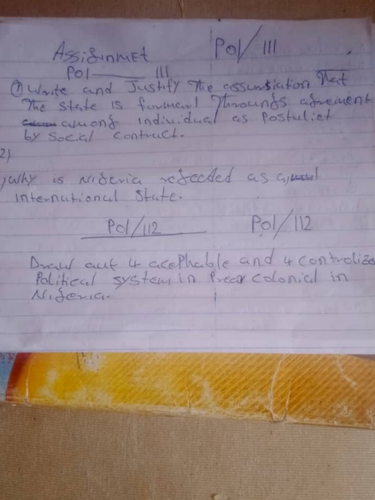 Assignmet
Pol/111
Pol — 111
① Write and Justify The assumsiation That
The state is formarl Throungs agrement
among individual as Postuliet
by social contract.
2)
, Why is Nigeria refected as a,
international State.
Pol/112
Pol/112
Draw out 4 acephable and 4 controlize
Political system in Pree colonial in
Nigeria.